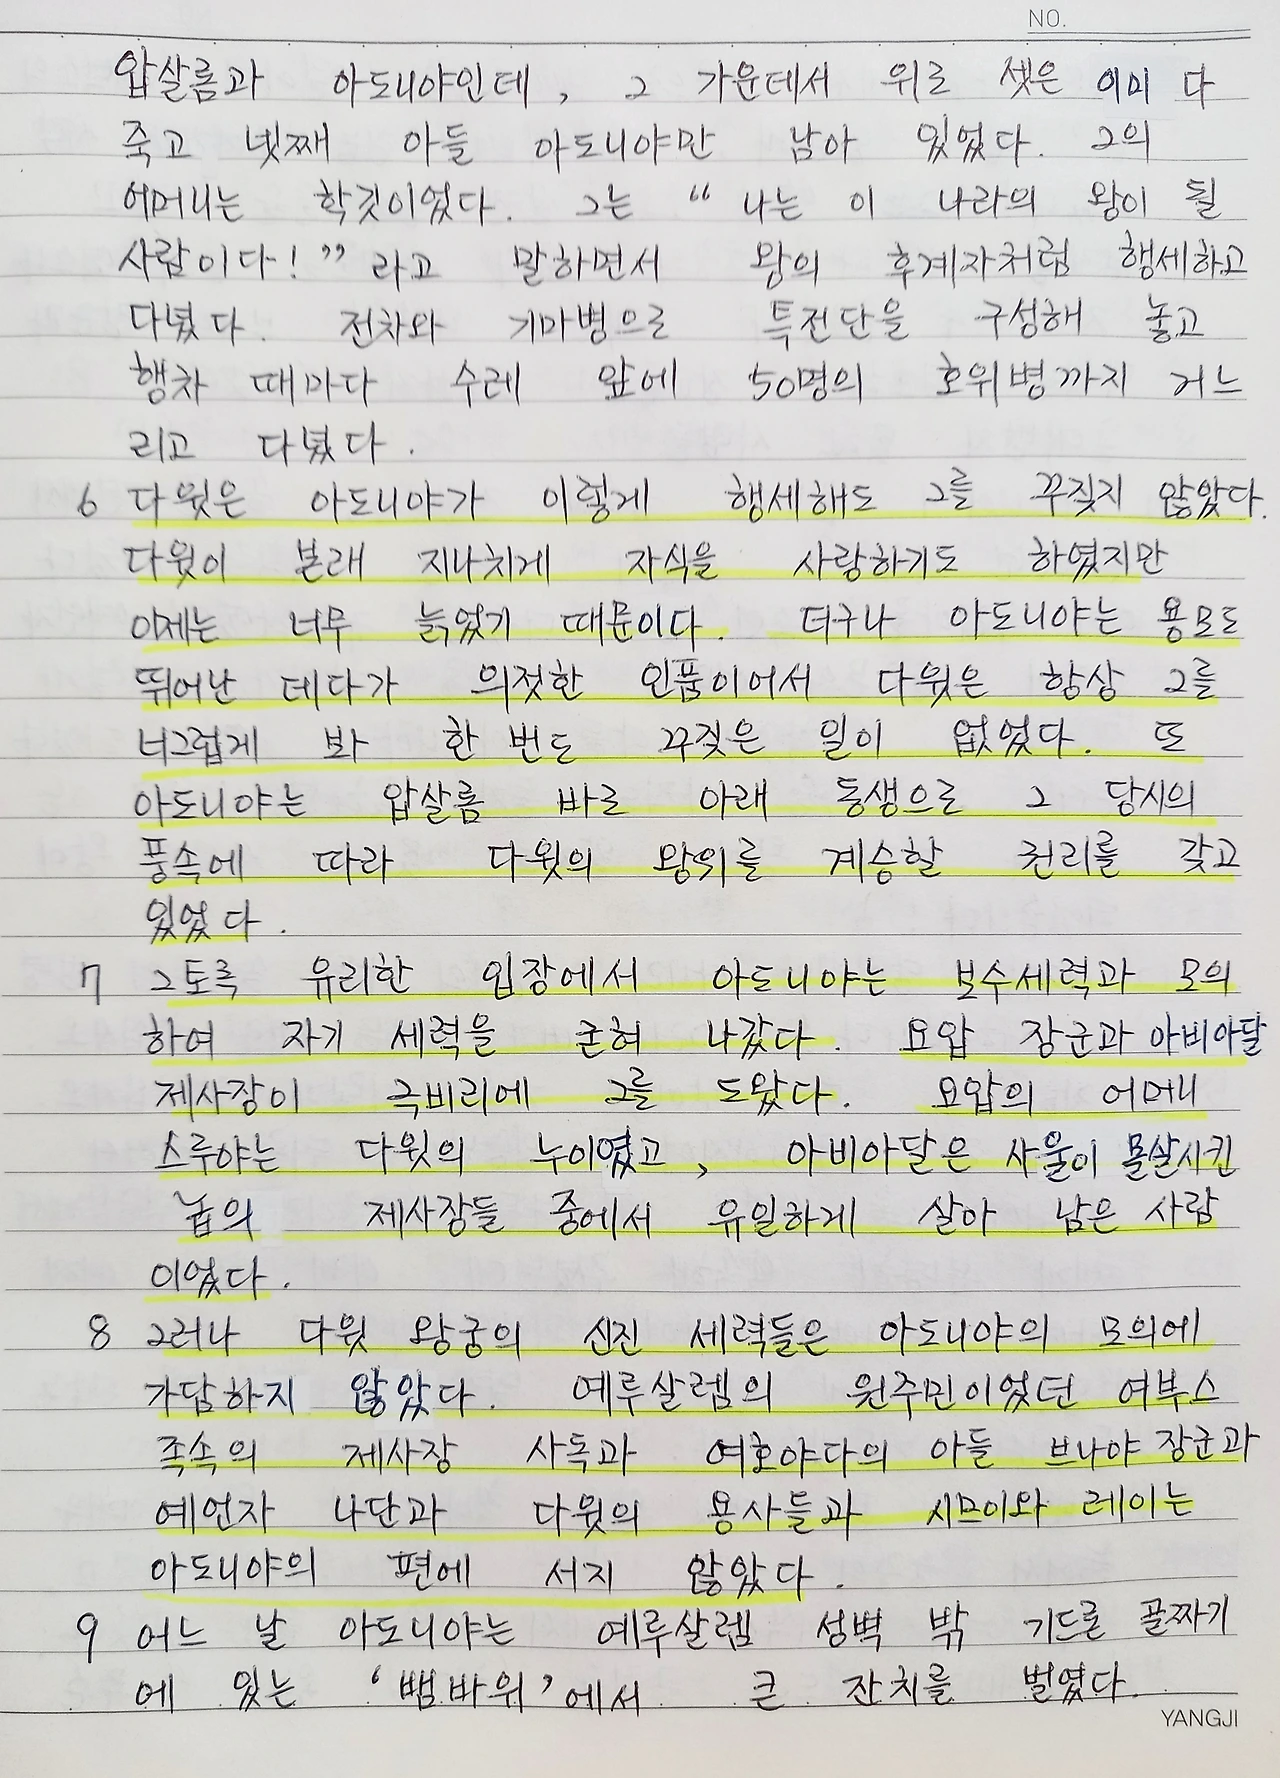 NO.
압살롬과 아도니야인데, 그 가운데서 위로 셋은 이미 다
죽고 넷째 아들 아도니야만 남아 있었다. 그의
어머니는 학깃이었다. 그는 “ 나는 이 나라의 왕이 될
사람이다! ” 라고 말하면서 왕의 후계자처럼 행세하고
다녔다. 전차와 기마병으로 특전단을 구성해 놓고
행차 때마다 수레 앞에 50명의 호위병까지 거느
리고 다녔다.
6 다윗은 아도니야가 이렇게 행세해도 그를 꾸짖지 않았다.
다윗이 본래 지나치게 자식을 사랑하기도 하였지만
이제는 너무 늙었기 때문이다. 더구나 아도니야는 용모도
뛰어난 데다가 의젓한 인품이어서 다윗은 항상 그를
너그럽게 봐 한 번도 꾸짖은 일이 없었다. 또
아도니야는 압살롬 바로 아래 동생으로 그 당시의
풍속에 따라 다윗의 왕위를 계승할 권리를 갖고
있었다.
7 그토록 유리한 입장에서 아도니야는 보수세력과 모의
하여 자기 세력을 굳혀 나갔다. 요압 장군과 아비아달
제사장이 극비리에 그를 도왔다. 요압의 어머니
스루야는 다윗의 누이였고, 아비아달은 사울이 몰살시킨
놉의 제사장들 중에서 유일하게 살아 남은 사람
이었다.
8 그러나 다윗 왕궁의 신진 세력들은 아도니야의 모의에
가담하지 않았다. 예루살렘의 원주민이었던 여부스
족속의 제사장 사독과 여호야다의 아들 브나야 장군과
예언자 나단과 다윗의 용사들과 시므이와 레이는
아도니야의 편에 서지 않았다.
9 어느 날 아도니야는 예루살렘 성벽 밖 기드론 골짜기
에 있는 ‘뱀바위’에서 큰 잔치를 벌였다.
YANGJI